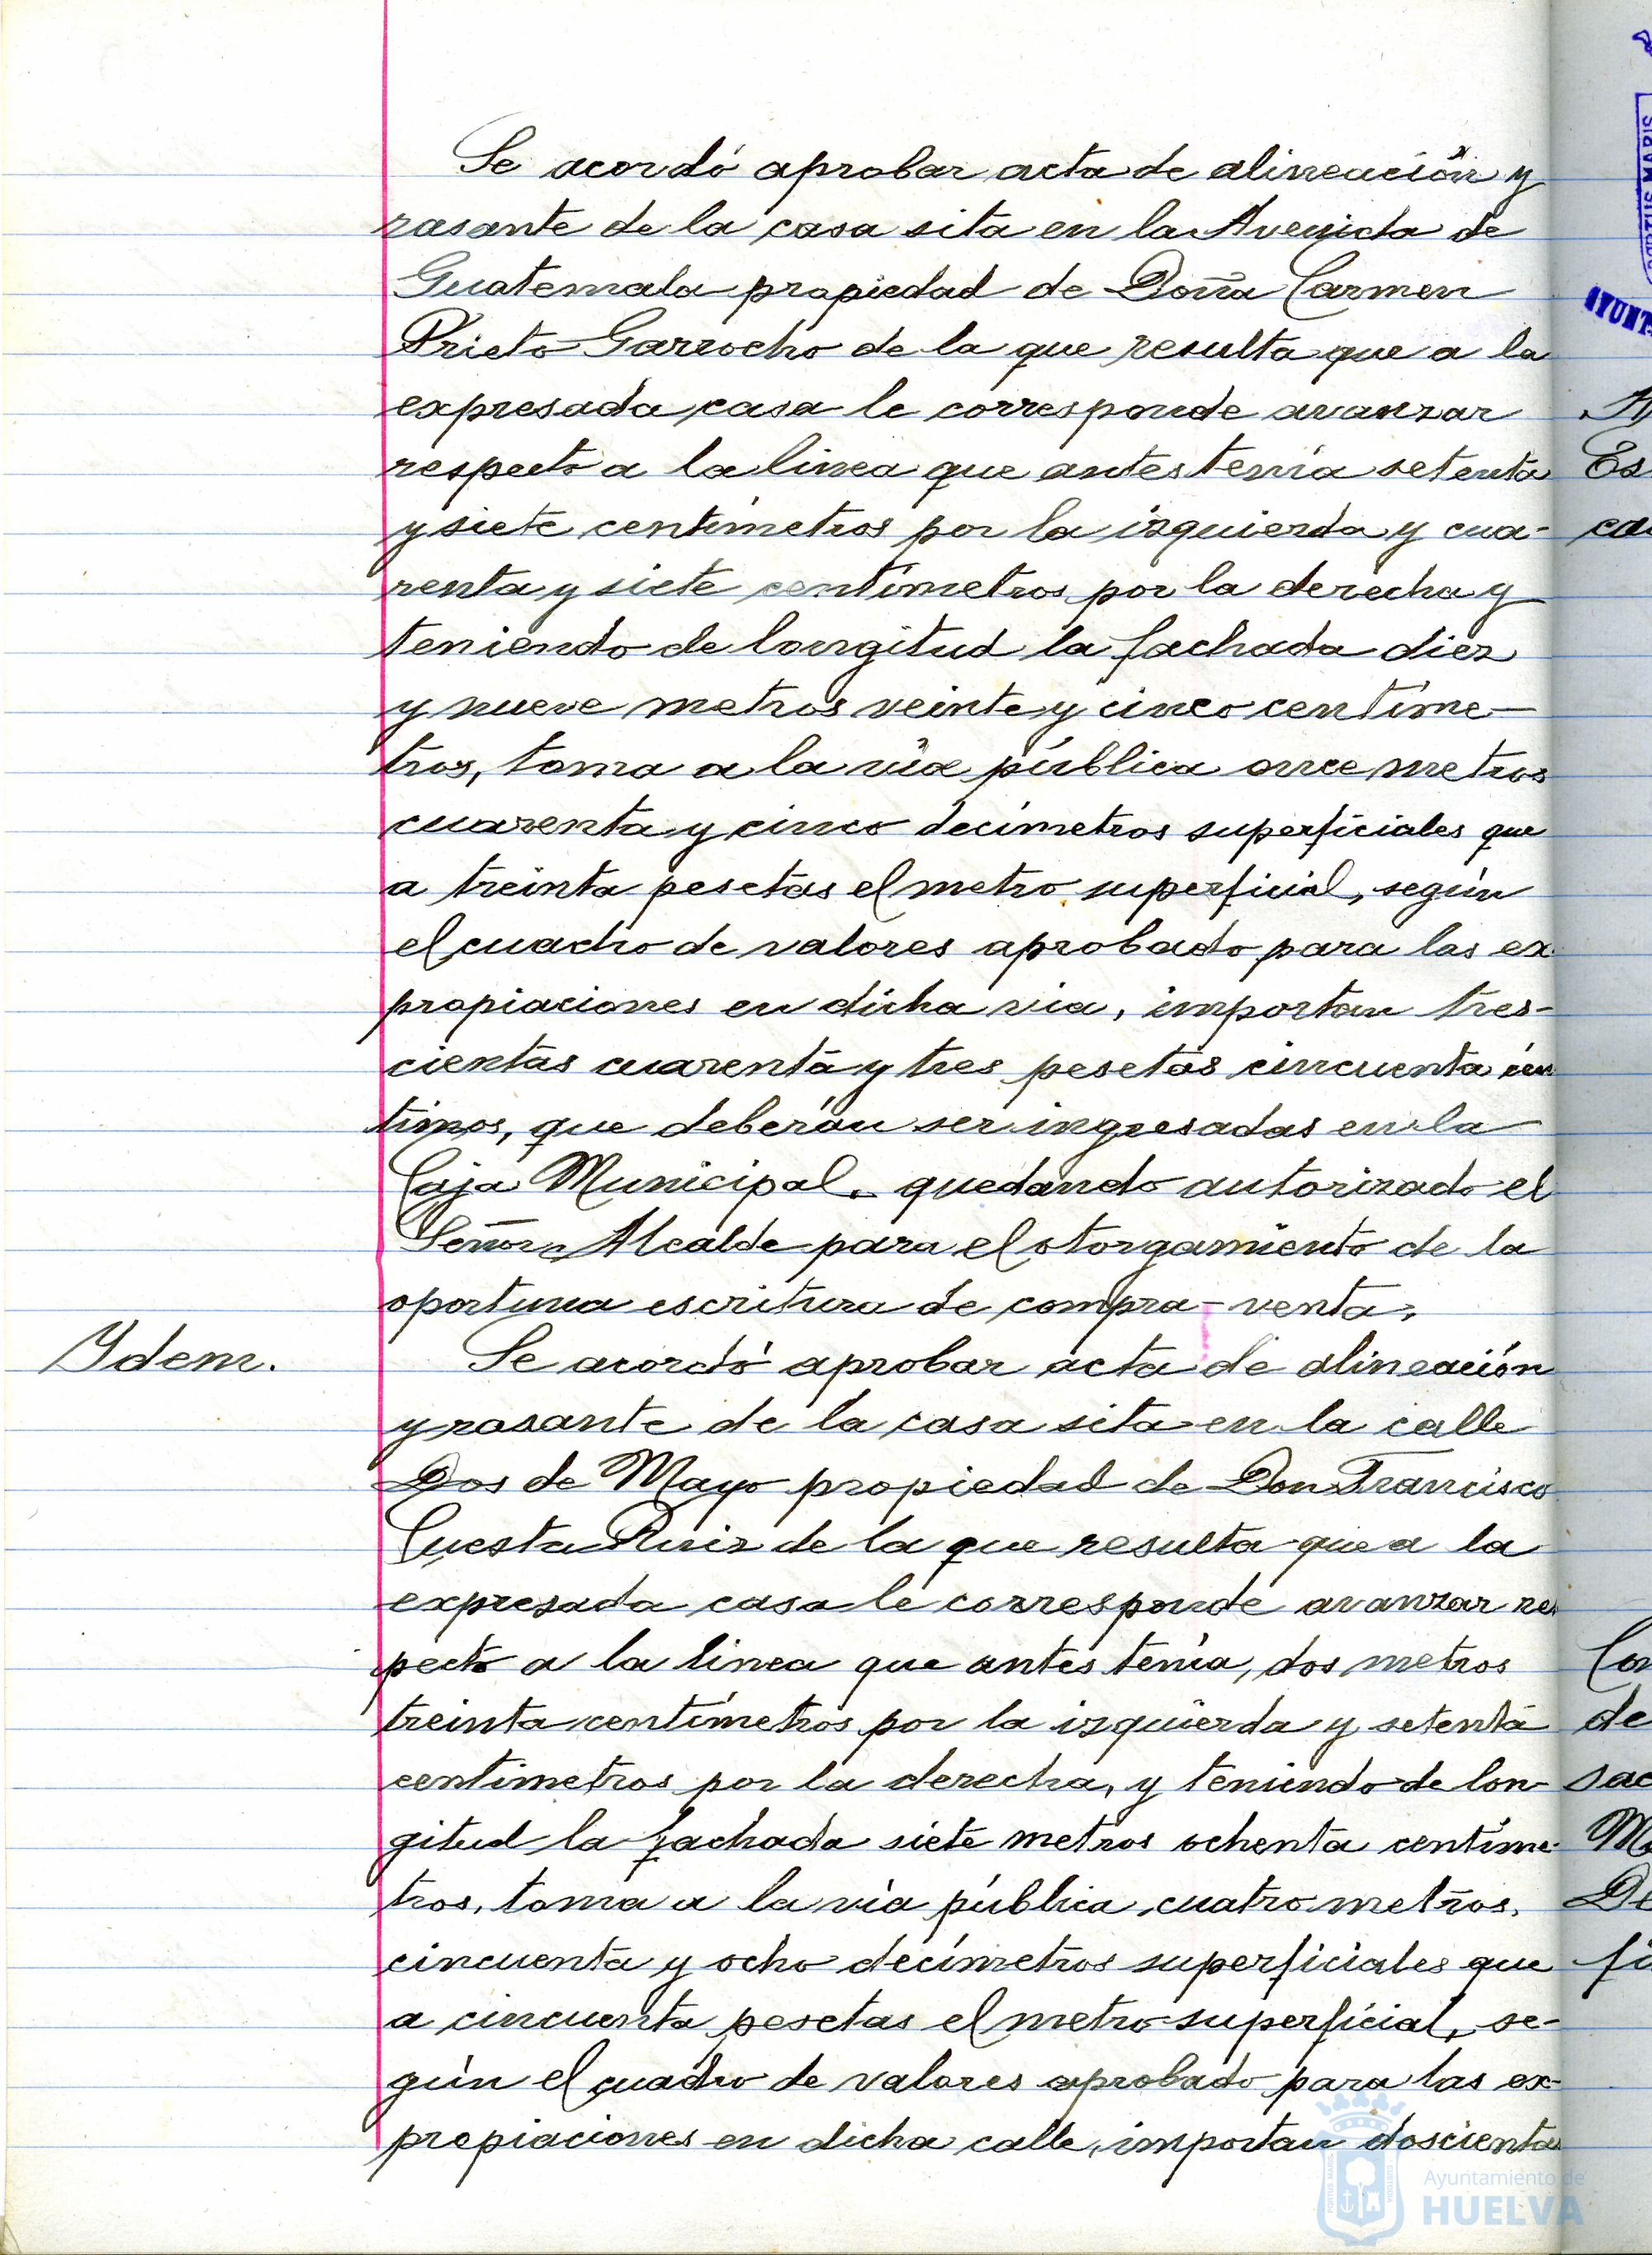 Se acordó aprobar acta de alineación y
rasante de la casa sita en la Avenida de
Guatemala propiedad de Doña Carmen
Prieto Garrocho de la que resulta que a la
expresada casa le corresponde avanzar
respecto a la linea que antes tenía setenta
y siete centímetros por la izquierda y cua-
renta y siete centímetros por la derecha y
teniendo de longitud la fachada diez
y nueve metros veinte y cinco centíme-
tros, toma a la vía pública once metros
cuarenta y cinco decímetros superficiales que
a treinta pesetas el metro superficial, según
el cuadro de valores aprobado para las ex-
propiaciones en dicha via, importan tres-
cientas cuarenta y tres pesetas cincuenta cén
timos, que deberán ser ingresadas en la
Caja Municipal. quedando autorizado el
Señor Alcalde para el otorgamiento de la
oportuna escritura de compra-venta.
Ydem. Se acordó aprobar acta de alineación
y rasante de la casa sita en la calle
Dos de Mayo propiedad de Don Francisco
Cuesta Ruiz de la que resulta que a la
expresada casa le corresponde avanzar res
pecto a la linea que antes tenía, dos metros
treinta centímetros por la izquierda y setenta
centimetros por la derecha, y teniendo de lon-
gitud la fachada siete metros ochenta centíme-
tros, toma a la vía pública, cuatro metros,
cincuenta y ocho decímetros superficiales que
a cincuenta pesetas el metro superficial, se-
gún el cuadro de valores aprobado para las ex-
propiaciones en dicha calle, importan doscientas
Ayuntamiento de
HUELVA